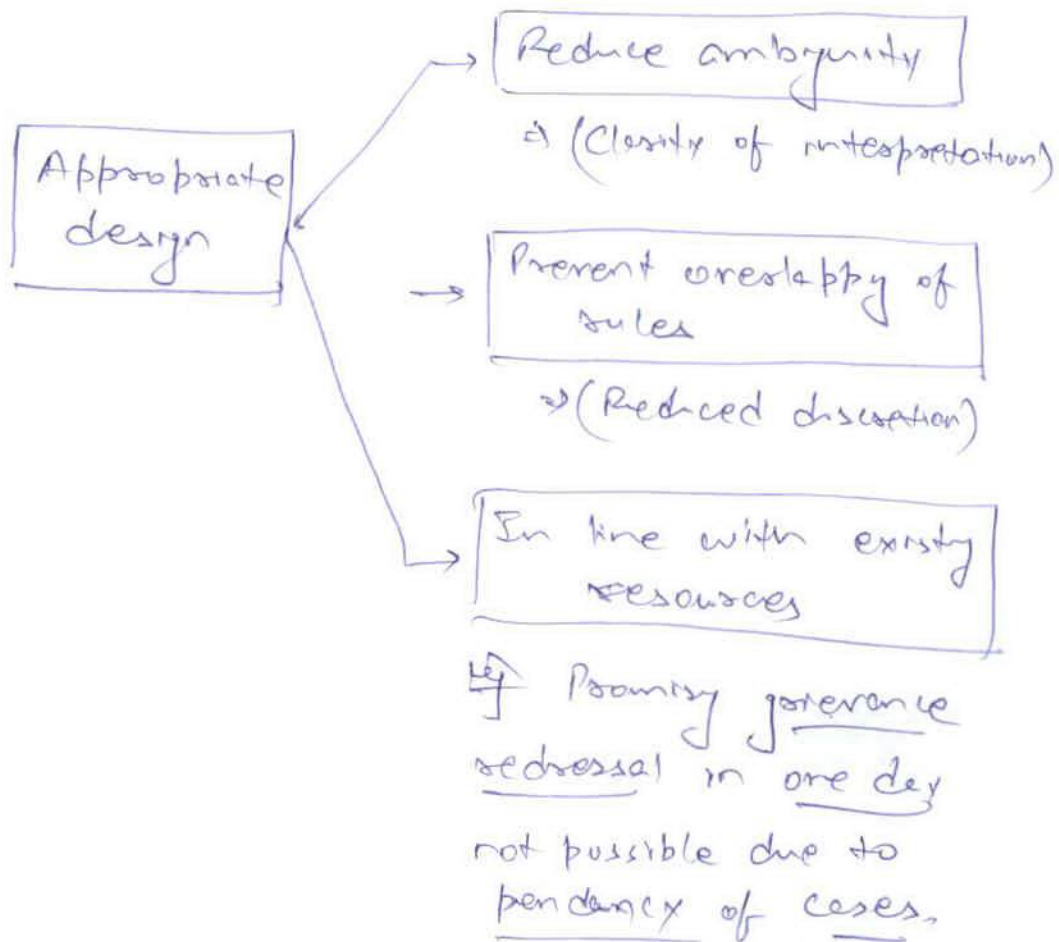 Appropriate
design
→ Reduce ambiguity
⇒ (Clarity of interpretation)
→ Prevent overlappy of
rules
⇒ (Reduced discretion)
→ In line with existy
resources
eg Promisy grievance
redressal in one day
not possible due to
pendancy of cases.